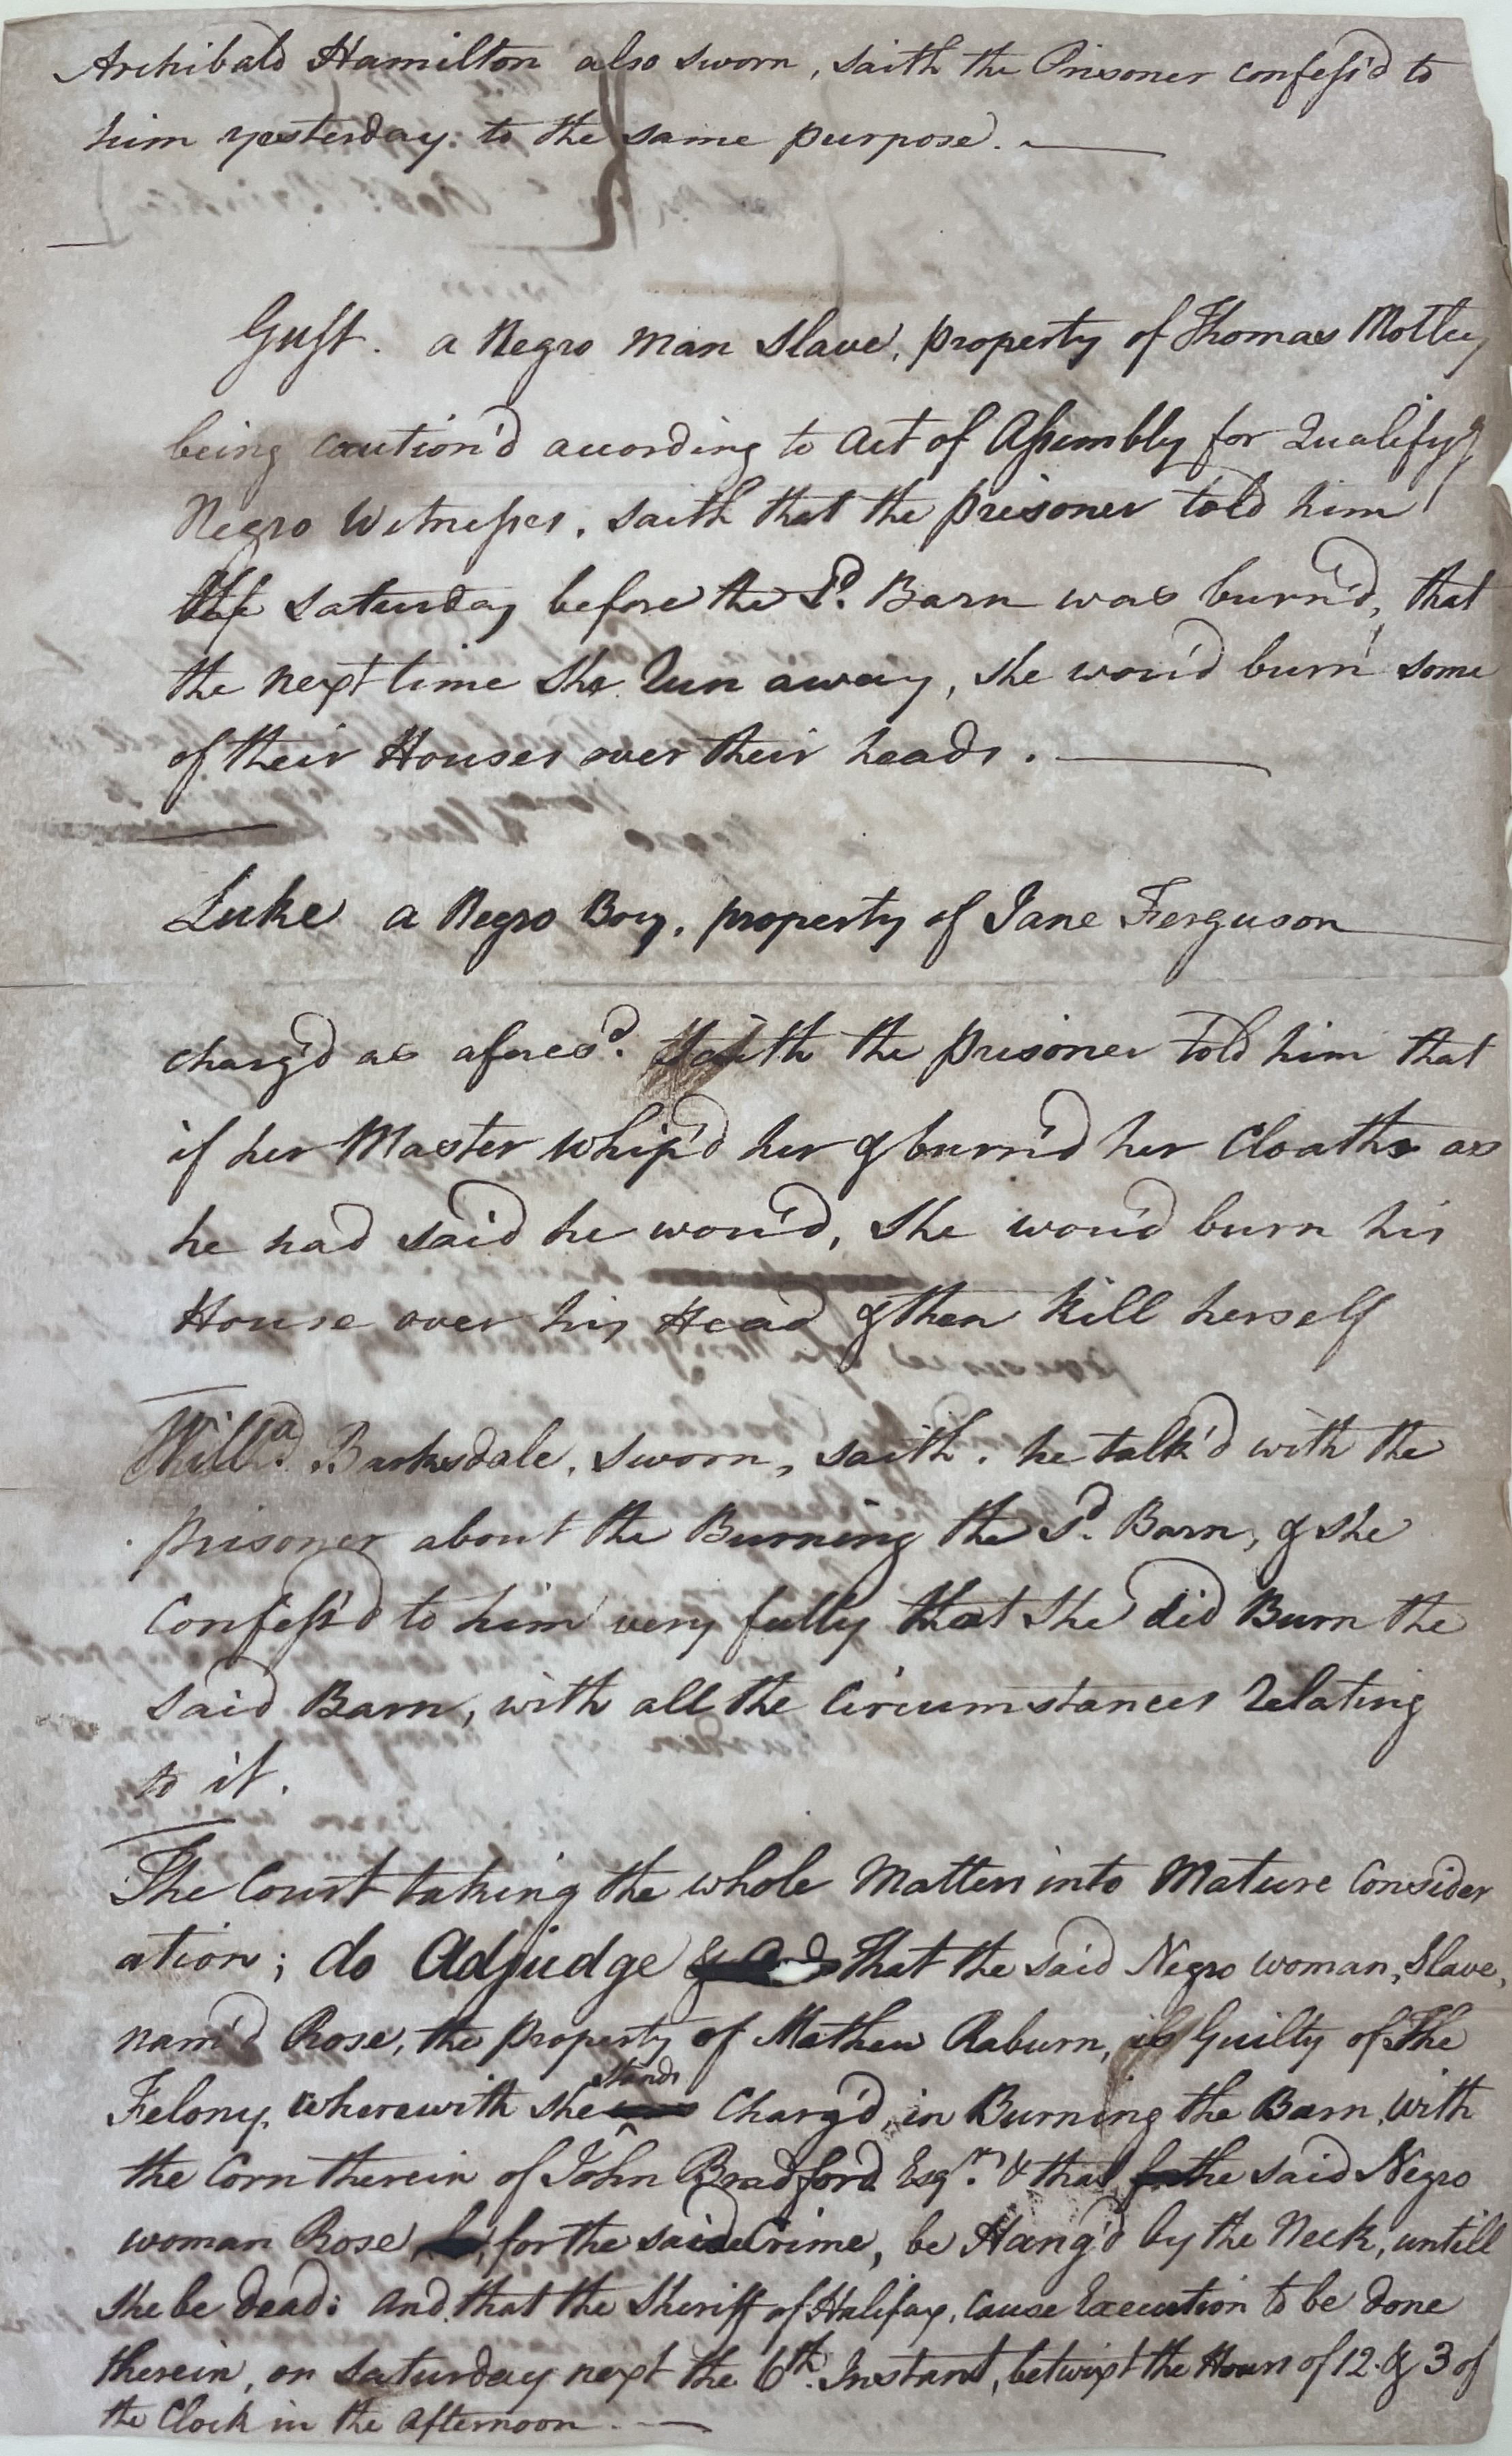 Archibald Hamilton also sworn, saith the Prisoner confess'd to
him yesterday. to the same purpose.
Gust. a Negro Man Slave, property of Thomas Motley
being caution'd according to Act of Assembly for Qualifyg
Negro Witnesses, saith that the prisoner told him
the Saturday before the Sd. Barn was burn'd, that
the next time she Run away, she wou'd burn some
of their Houses over their heads.
Luke a Negro Boy, property of Jane Ferguson
charg'd as aforesd. Saith the prisoner told him that
if her Master whip'd her & burn'd her Cloaths as
he had said he wou'd, She wou'd burn his
House over his Head & then kill herself
Barksdale, sworn, saith. he talk'd with the
prisoner about the Burning the Sd. Barn, & she
Confess'd to him very fully that she did Burn the
said Barn, with all the Circumstances Relating
to it.
The Court taking the whole Matter into Mature Consider
ation; do Adjudge That the said Negro woman, Slave,
nam'd Rose, the property of Mathew Raburn, is Guilty of The
Felony, wherewith she stands Charg'd, in Burning the Barn, with
the Corn therein of John Bradford Esqr. & that the said Negro
woman Rose, for the said Crime, be Hang'd by the Neck, untill
she be dead: And that the Sheriff of Halifax, Cause Execution to be done
therein, on Saturday next the 6th. Instant, betwixt the Hours of 12 & 3 of
the Clock in the Afternoon.